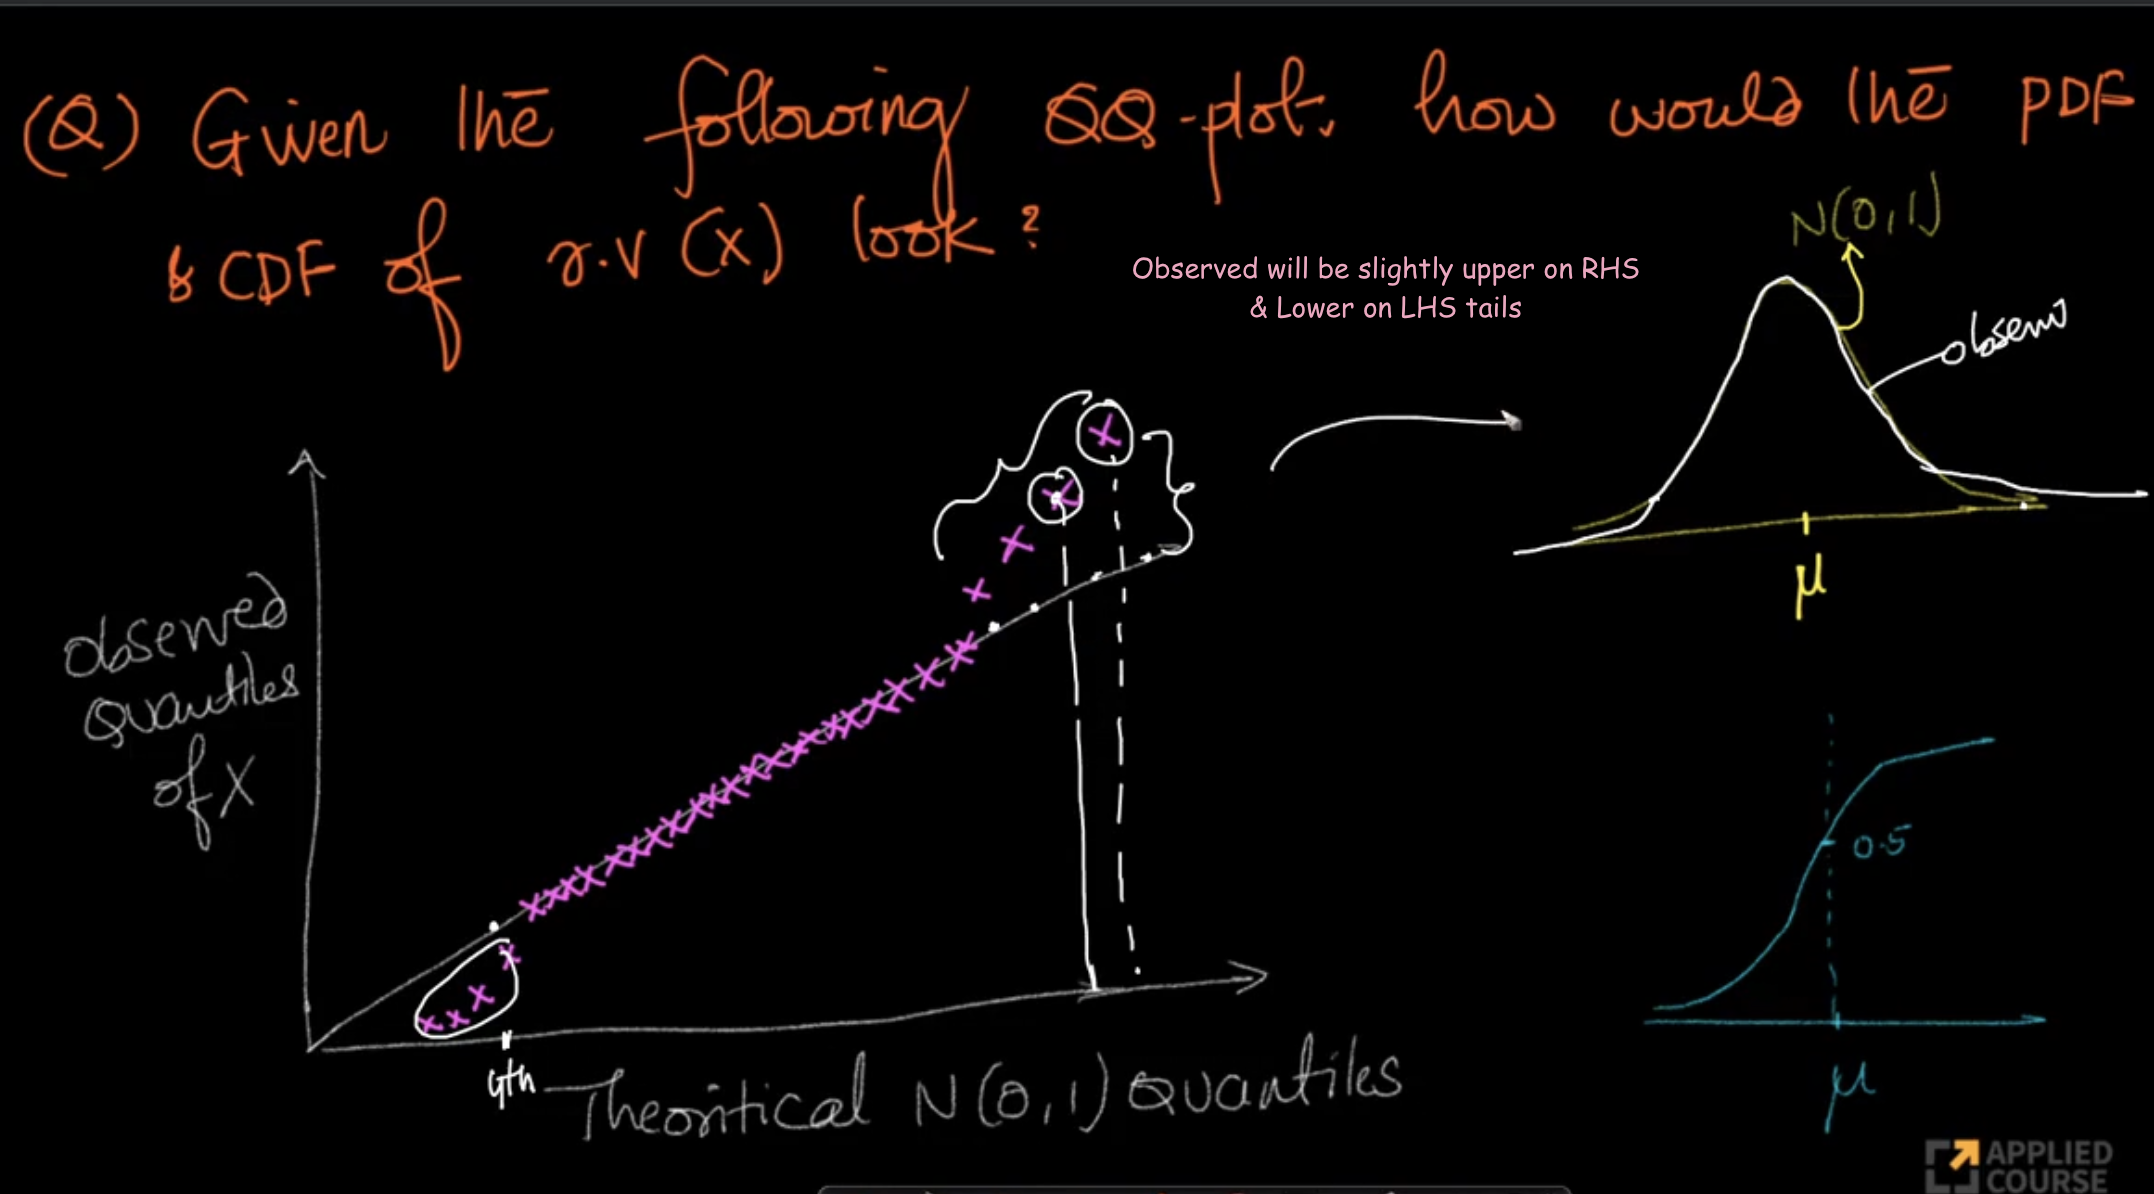 (Q) Given the following QQ-plot, how would the PDF
& CDF of r.v (X) look?
N(0,1)
Observed will be slightly upper on RHS
& Lower on LHS tails
observ
μ
Observed
Quantiles
of X
0.5
4th
Theoritical N(0,1) Quantiles
μ
APPLIED
COURSE